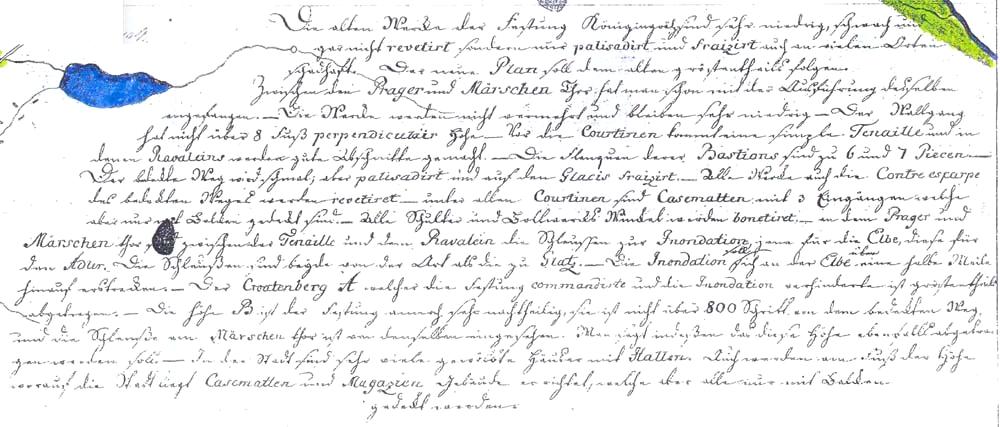 Die alten Wercke der Festung Königingrätz sind sehr niedrig, schwach und
gar nicht revetirt sondern nur palisadirt und fraizirt auch an vielen Orten
schadhaft. Der neue Plan soll dem alten gröstentheils folgen.
Zwischen den Prager und Märschen Thor hat man schon mit der Ausführung desselben
angefangen. — Die Wercke werden nicht vermehrt und bleiben sehr niedrig — Der Wallgang
hat nicht über 8 Fuß perpendiculair Höhe — Vor die Courtinen kommt eine simple Tenaille und in
denen Ravaleins werden gute Abschnitte gemacht. — Die Flanquen derer Bastions sind zu 6 und 7 Piecen —
Der bedekte Weg wird schmal; aber palisadirt und auf den Glacis fraizirt. — Alle Wercke auch die Contre esparpe
des bedekten Weges werden revetiret — unter allen Courtinen sind Casematten mit 3 Eingängen welche
aber nur mit Balcken gedekt sind. — Alle Schulter und Bollwercks Winckel werden bonetiret, — in dem Prager und
Märschen Thor sind zwischen der Tenaille und dem Ravalein die Schleussen zur Inondation, jene für die Elbe, diese für
den Adler. Die Schleußen sind beyde von der Art als die zu Glatz. — Die Inondation soll sich an der Elbe über eine halbe Meile
hinauf erstrecken. — Der Croatenberg A welcher die Festung commandirte und die Inondation verhinderte ist gröstentheils
abgetragen. — Die Höhe B ist der Festung annoch sehr nachtheilig, sie ist nicht über 800 Schritt von dem bedekten Weg
und die Schleuse am Märschen Thor ist von denselben eingesehen. Man sagt indeßen daß diese Höhe ebenfalls abgetra
gen werden soll — In der Stadt sind sehr viele Häuser mit Auch werden am Fuß der Höhe
worauf die Stadt liegt Casematten und Magazien Gebäude errichtet, welche aber alle nur mit Balcken
gedekt werden.